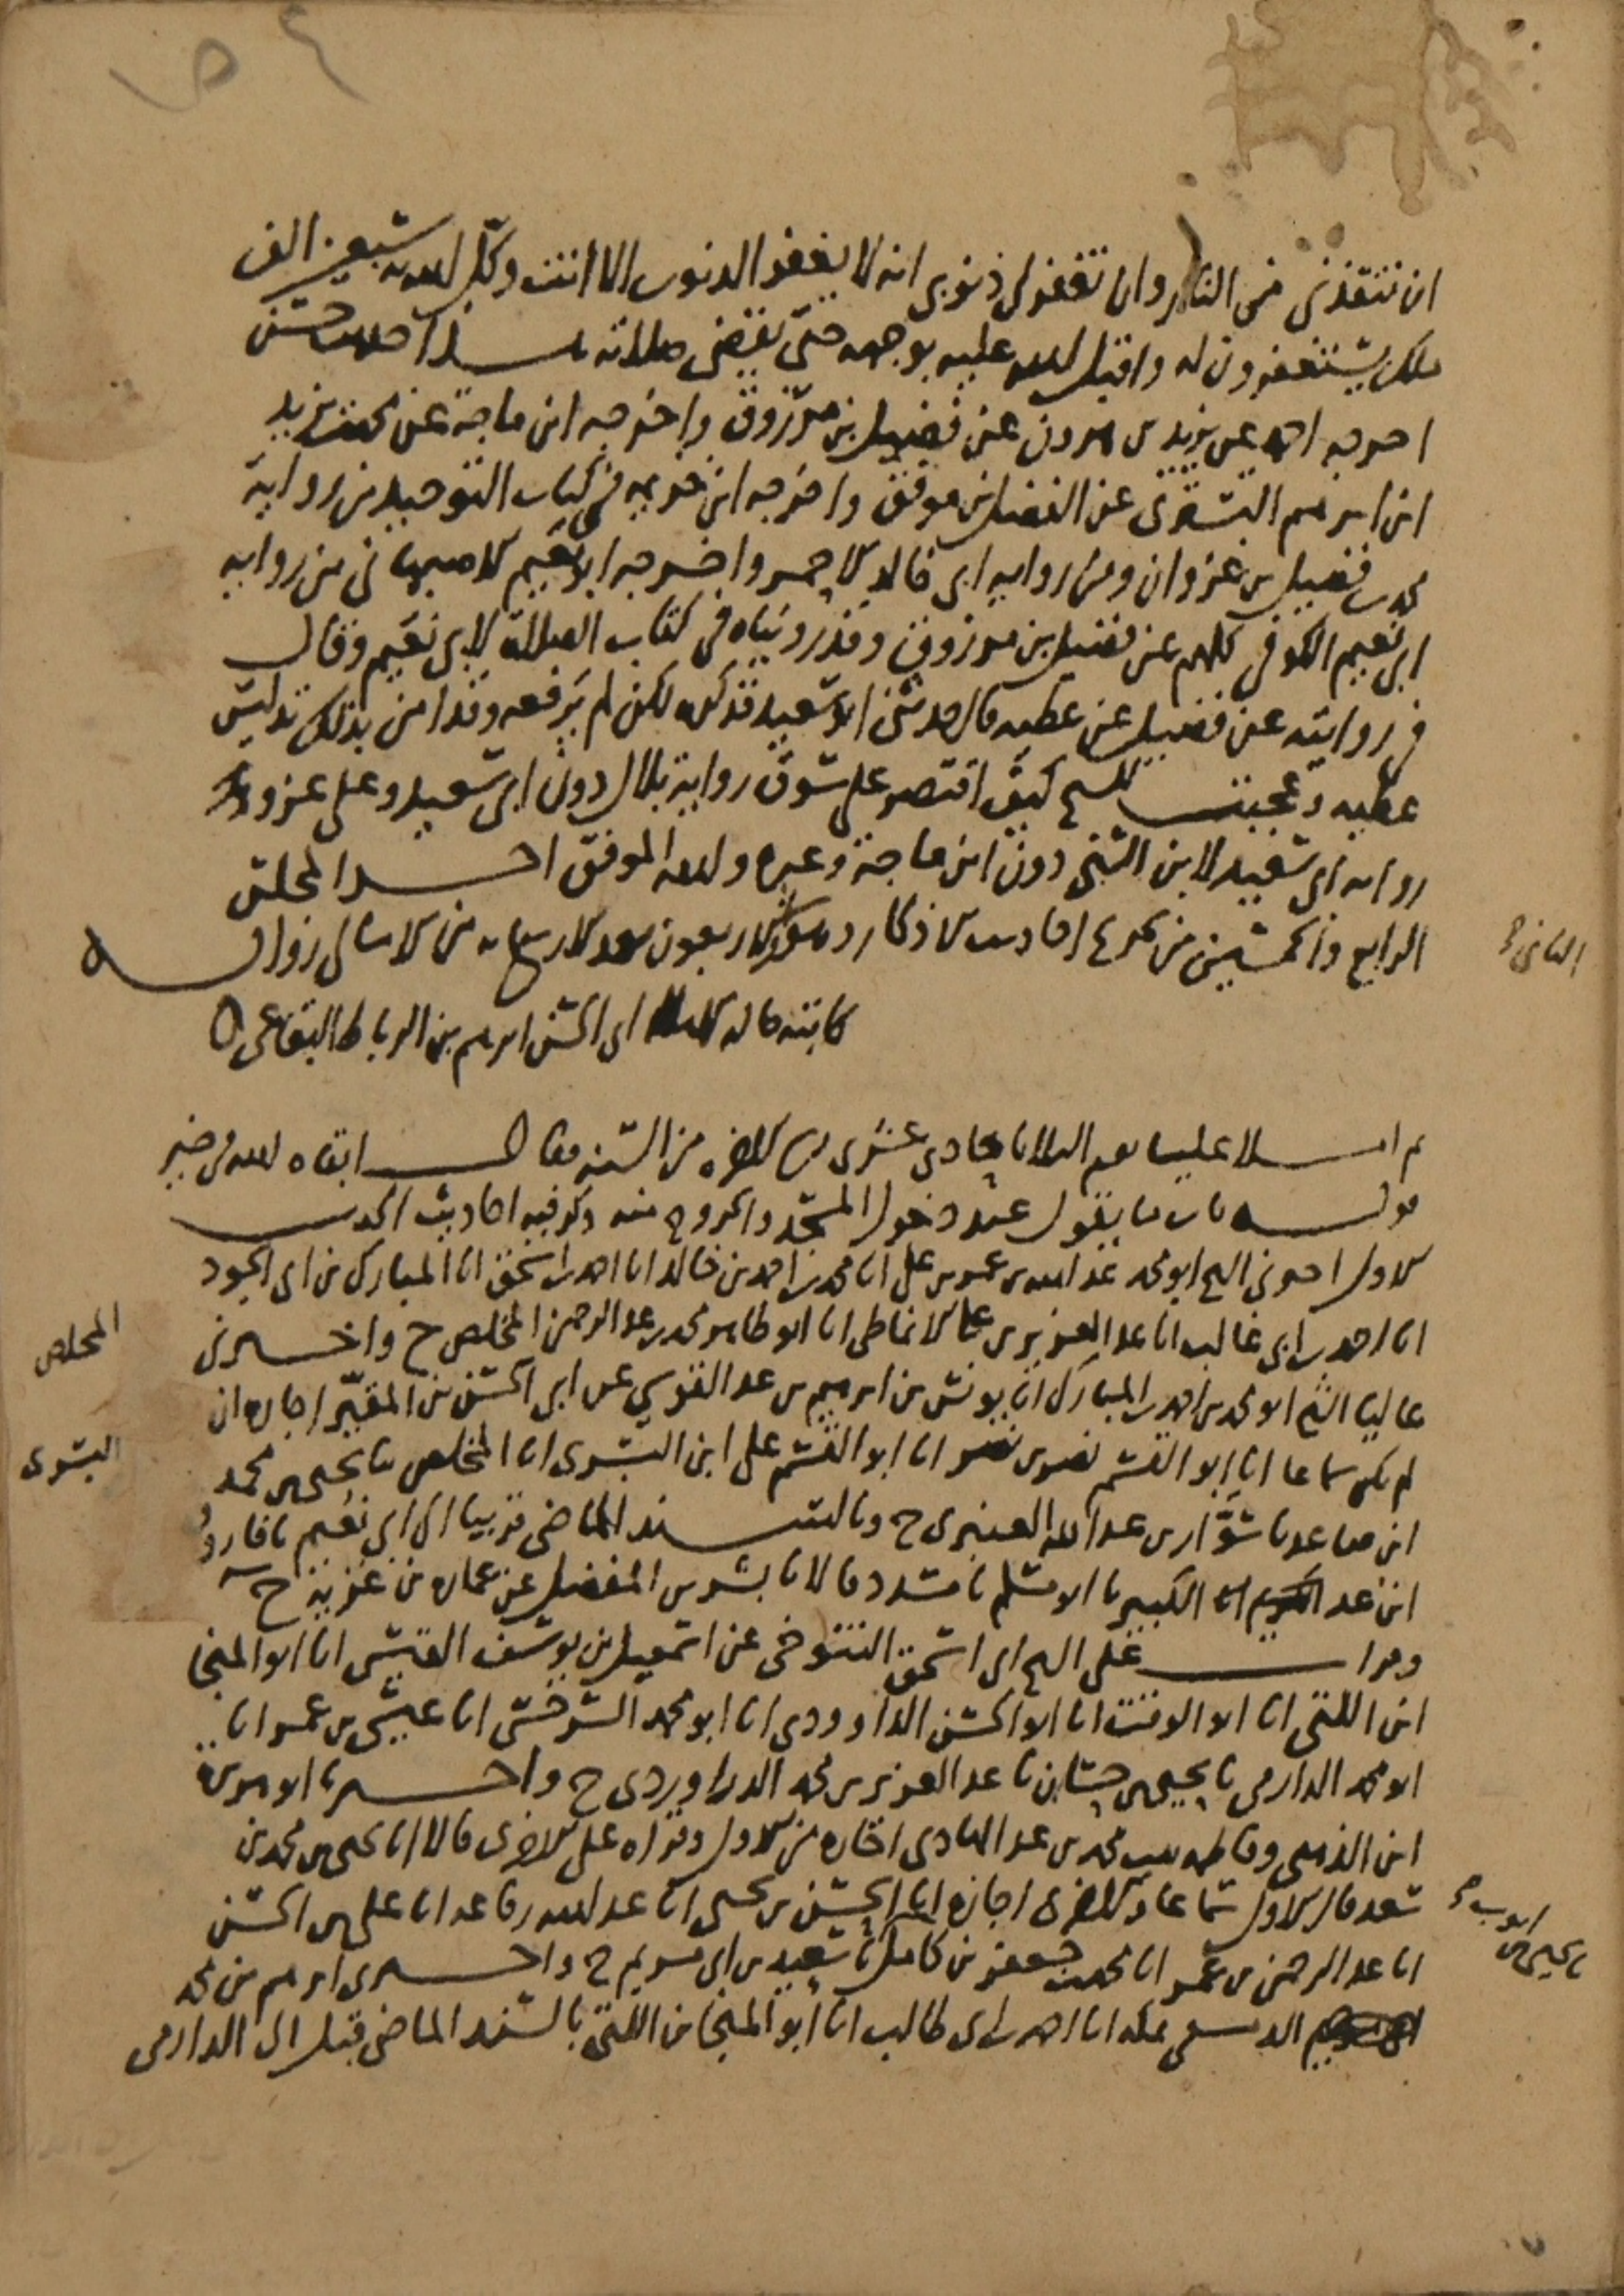 ان تنقذني من النار وان تغفر لي ذنوبي انه لا يغفر الذنوب الا انت وكل الله به سبعين الف
ملك يستغفرون له واقبل الله عليه بوجهه حتى يقضي صلاته هذا حديث حسن
اخرجه احمد عن يزيد بن هرون عن فضيل بن مرزوق واخرجه ابن ماجة عن محمد بن يزيد
ابن ابرهيم التستري عن الفضل بن موفق واخرجه ابن خزيمه في كتاب التوحيد من رواية
محمد بن فضيل بن غزوان ومن رواية ابي خالد الاحمر واخرجه ابو نعيم الاصبهاني من رواية
ابي نعيم الكوفي كلهم عن فضيل بن مرزوق وقد رويناه في كتاب الصلاة لابي نعيم وقال
في روايته عن فضيل عن عطيه قال حدثني ابو سعيد فذكره لكن لم يرفعه وقد امن بذلك تدليس
عطيه وعجبت للشيخ كيف اقتصر على سوق رواية بلال دون ابي سعيد وعلى عزو
رواية ابي سعيد لابن السني دون ابن ماجة وغيره والله الموفق اخر المجلس
الرابع والخمسين من تخريج احاديث الاذكار وهو الاربعون بعد الاربعمايه من الامالي رواية
الثاني
كاتبه ابي الحسن ابرهيم بن الرباط البقاعي
ثم املا علينا يوم الثلاثا حادي عشري الاخره من السنه فقال ابقاه الله في خير
قوله باب ما يقول عند دخول المسجد والخروج منه ذكر فيه احاديث الحديث
الاول اخبرني الشيخ ابو محمد عبد الله بن عمر بن علي انا محمد بن احمد بن خالد انا احمد بن اسحق انا المبارك بن ابي الجود
انا احمد بن ابي غالب انا عبد العزيز بن علي الانماطي انا ابو طاهر محمد بن عبد الرحمن المخلص ح واخبرني
المخلص
عاليا الشيخ ابو محمد بن احمد بن المبارك انا يونس بن ابرهيم بن عبد القوي عن ابي الحسن بن المقير اجازه ان
لم يكن سماعا انا ابو القسم نصر بن نصر انا ابو القسم علي ابن البسري انا المخلص نا يحيى بن محمد
البسري
ابن صاعد نا سوار بن عبد الله العنبري ح وبالسند الماضي قريبا الى ابي نعيم نا فاروق
ابن عبد الكبير نا ابو مسلم نا مسدد قالا نا بشر بن المفضل عن عماره بن غزيه ح
وقرات على الشيخ ابي اسحق التنوخي عن اسمعيل بن يوسف القيسي انا ابو المنجا
ابن اللتي انا ابو الوقت انا ابو الحسن الداوودي انا ابو محمد السرخسي انا عيسى بن عمر انا
ابو محمد الدارمي نا يحيى بن حسان نا عبد العزيز بن محمد الدراوردي ح واخبرنا ابو هريرة
ابن الذهبي وفاطمه بنت محمد بن عبد الهادي اجازه من الاول وقراه على الاخرى قالا انا يحيى بن محمد بن
سعد قال الاول سماعا والاخرى اجازه انا الحسن بن يحيى انا عبد الله بن رفاعه انا علي بن الحسن
انا عبد الرحمن بن عمر انا محمد بن جعفر بن كامل نا سعيد بن ابي مريم ح واخبرني ابرهيم بن محمد
نا يحيى بن ايوب
الدمشقي بمكه انا احمد بن ابي طالب انا ابو المنجا بن اللتي بالسند الماضي قبل الى الدارمي